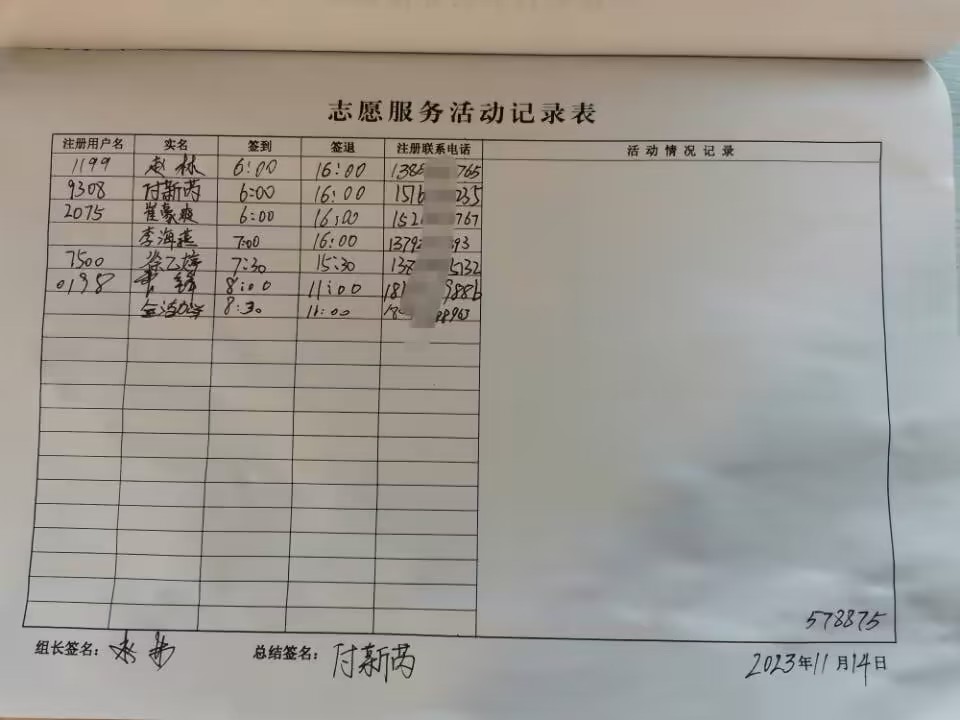 志愿服务活动记录表
注册用户名 实名 签到 签退 注册联系电话 活动情况记录
1199 赵林 6:00 16:00 138 765
9308 付新芮 6:00 16:00 1516 235
2075 崔豪爽 6:00 16:00 152 767
李海燕 7:00 16:00 1379 93
7500 徐乙婷 7:30 15:30 138 5132
0198 8:00 11:00 181 9886
8:30 11:00 18 88963
578875
组长签名: 总结签名: 付新芮
2023年11月14日